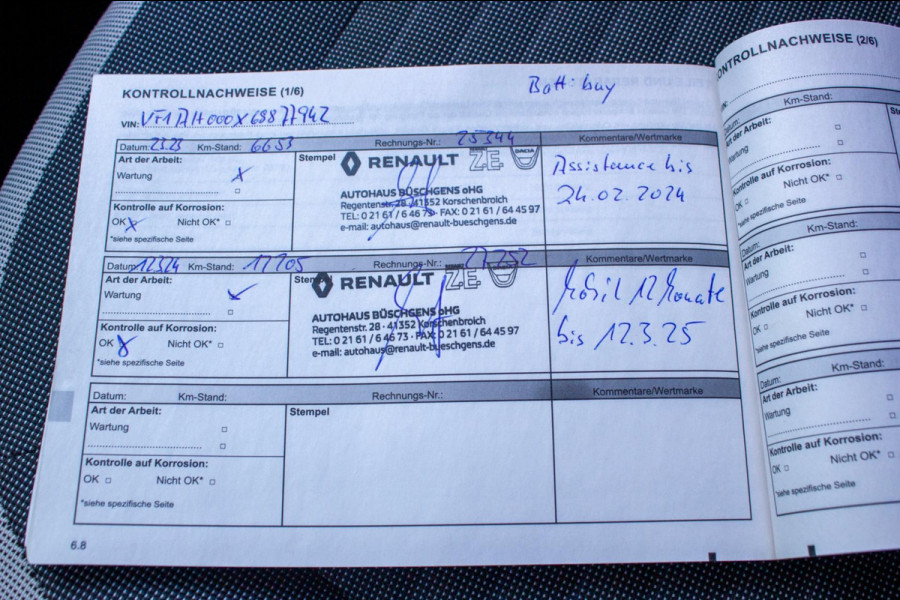 KONTROLLNACHWEISE (1/6)
Batt: buy
VIN:
Datum: Km-Stand: 6653 Rechnungs-Nr.: 25344 Kommentare/Wertmarke
Art der Arbeit:
Wartung X
Kontrolle auf Korrosion:
OK X Nicht OK*
*siehe spezifische Seite
Stempel
RENAULT Z.E. DACIA
AUTOHAUS BÜSCHGENS oHG
Regentenstr. 28 · 41352 Korschenbroich
TEL: 0 21 61 / 6 46 73 · FAX: 0 21 61 / 64 45 97
e-mail: autohaus@renault-bueschgens.de
Assistance bis
24.02.2024
Datum: 12324 Km-Stand: 17705 Rechnungs-Nr.: 27252 Kommentare/Wertmarke
Art der Arbeit:
Wartung ✓
Kontrolle auf Korrosion:
OK X Nicht OK*
*siehe spezifische Seite
Stempel
RENAULT Z.E.
AUTOHAUS BÜSCHGENS oHG
Regentenstr. 28 · 41352 Korschenbroich
TEL: 0 21 61 / 6 46 73 · FAX: 0 21 61 / 64 45 97
e-mail: autohaus@renault-bueschgens.de
Mobil 12 Monate
bis 12.3.25
Datum: Km-Stand: Rechnungs-Nr.: Kommentare/Wertmarke
Art der Arbeit:
Wartung
Kontrolle auf Korrosion:
OK Nicht OK*
*siehe spezifische Seite
Stempel
6.8
KONTROLLNACHWEISE (2/6)
Datum: Km-Stand:
Art der Arbeit:
Wartung
Kontrolle auf Korrosion:
OK Nicht OK*
*siehe spezifische Seite
Datum: Km-Stand:
Art der Arbeit:
Wartung
Kontrolle auf Korrosion:
OK Nicht OK*
*siehe spezifische Seite
Datum: Km-Stand:
Art der Arbeit:
Wartung
Kontrolle auf Korrosion:
OK Nicht OK*
*siehe spezifische Seite